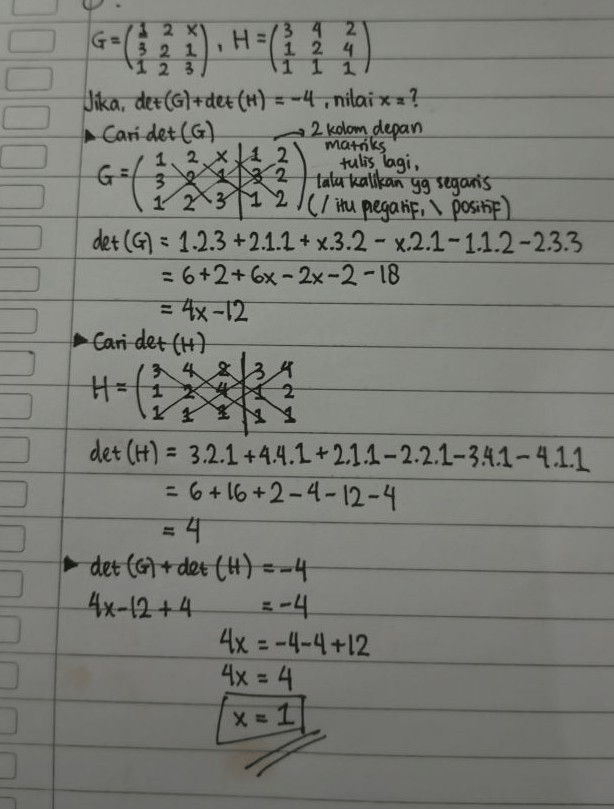 G = (1 2 x
3 2 1
1 2 3), H = (3 4 2
1 2 4
1 1 1)
Jika, det(G) + det(H) = -4, nilai x = ?
▶ Cari det(G)
→ 2 kolom depan
matriks
tulis lagi,
lalu kalikan yg segaris
(/ itu negatif, \ positif)
G = (1 2 x | 1 2
3 2 1 | 3 2
1 2 3 | 1 2)
det(G) = 1.2.3 + 2.1.1 + x.3.2 - x.2.1 - 1.1.2 - 2.3.3
= 6 + 2 + 6x - 2x - 2 - 18
= 4x - 12
▶ Cari det(H)
H = (3 4 2 | 3 4
1 2 4 | 1 2
1 1 1 | 1 1
det(H) = 3.2.1 + 4.4.1 + 2.1.1 - 2.2.1 - 3.4.1 - 4.1.1
= 6 + 16 + 2 - 4 - 12 - 4
= 4
▶ det(G) + det(H) = -4
4x - 12 + 4 = -4
4x = -4 - 4 + 12
4x = 4
x = 1